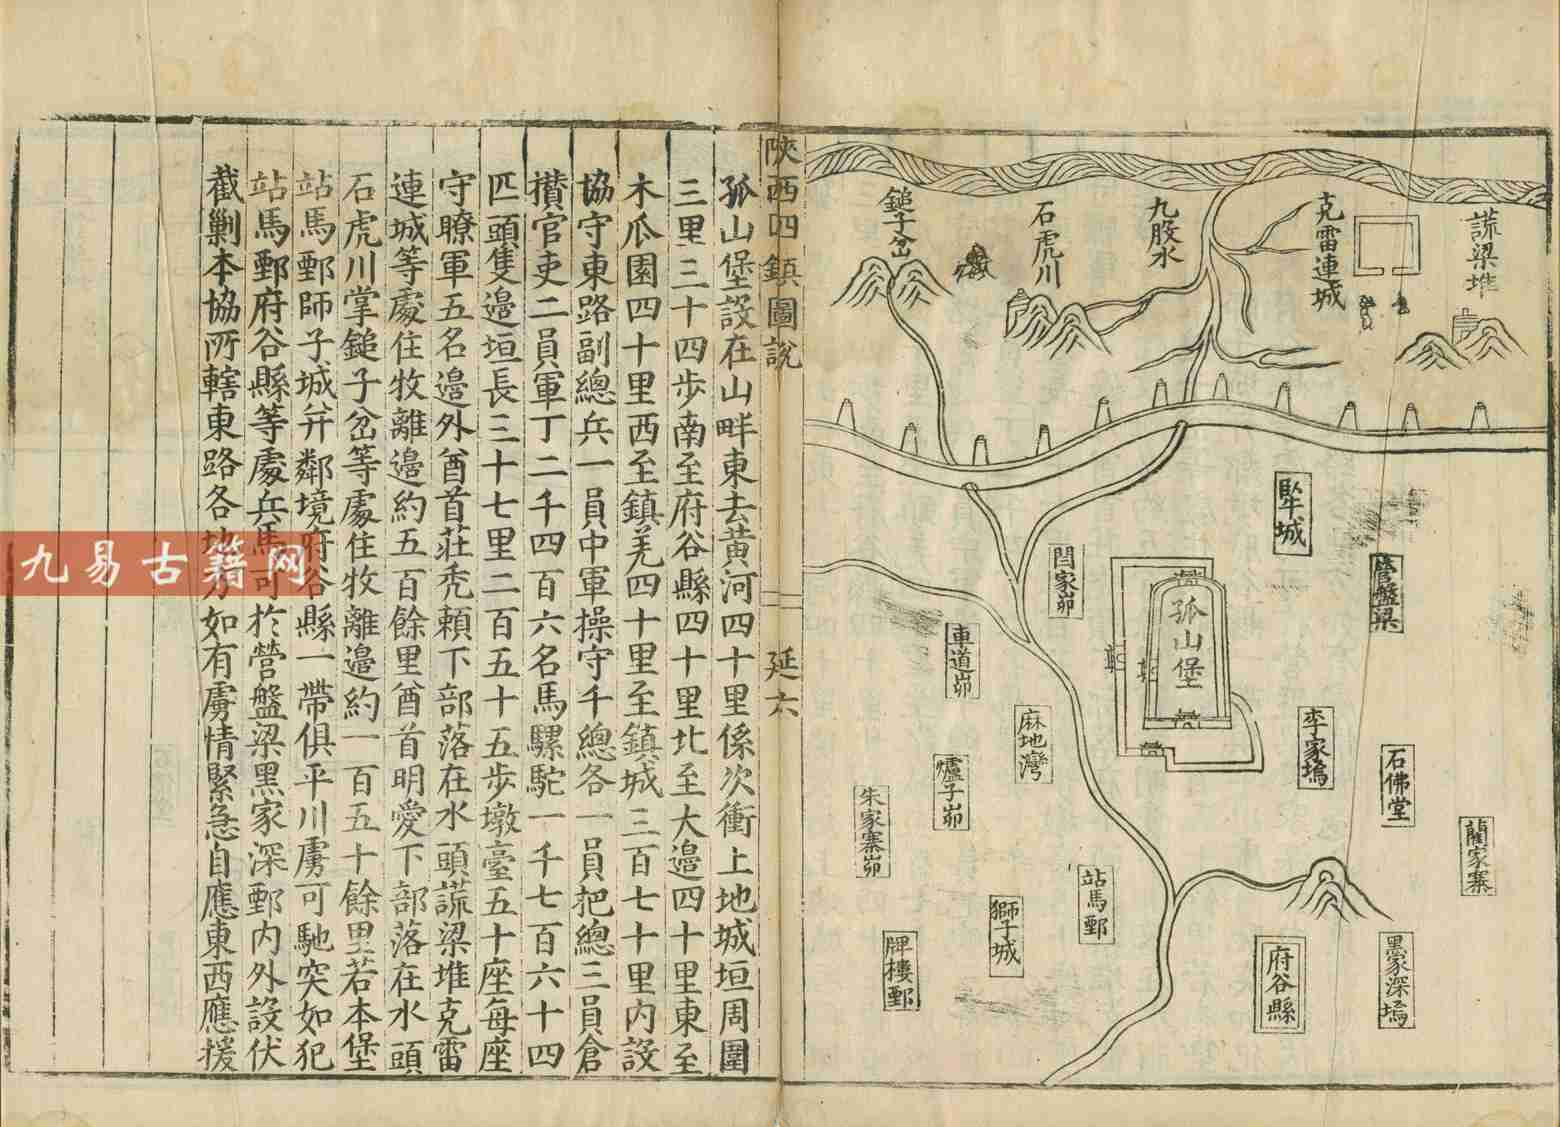 謊梁堆
克雷連城
九股水
石虎川
鎚子岔
犂城
營盤梁
閆家峁
孤山堡
車道峁
李家塢
麻地灣
石佛堂
爐子峁
朱家寨峁
藺家寨
站馬鄄
獅子城
牌樓鄄
府谷縣
黑家深塢
陝西四鎮圖說
延六
孤山堡設在山畔東去黃河四十里係次衝上地城垣周圍
三里三十四步南至府谷縣四十里北至大邉四十里東至
木瓜園四十里西至鎮羌四十里至鎮城三百七十里內設
協守東路副總兵一員中軍操守千總各一員把總三員倉
攅官吏二員軍丁二千四百六名馬騾駝一千七百六十四
匹頭隻邉垣長三十七里二百五十五步墩臺五十座每座
守瞭軍五名邉外酋首莊禿賴下部落在水頭謊梁堆克雷
連城等處住牧離邉約五百餘里酋首明愛下部落在水頭
石虎川掌鎚子岔等處住牧離邉約一百五十餘里若本堡
站馬鄄師子城并鄰境府谷縣一帶俱平川虜可馳突如犯
站馬鄄府谷縣等處兵馬可於營盤梁黑家深鄄內外設伏
截剿本協所轄東路各地方如有虜情緊急自應東西應援
九易古籍网